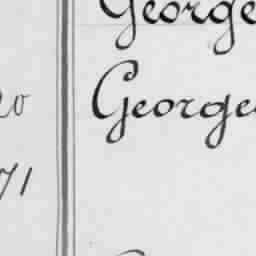 George
20
George
71